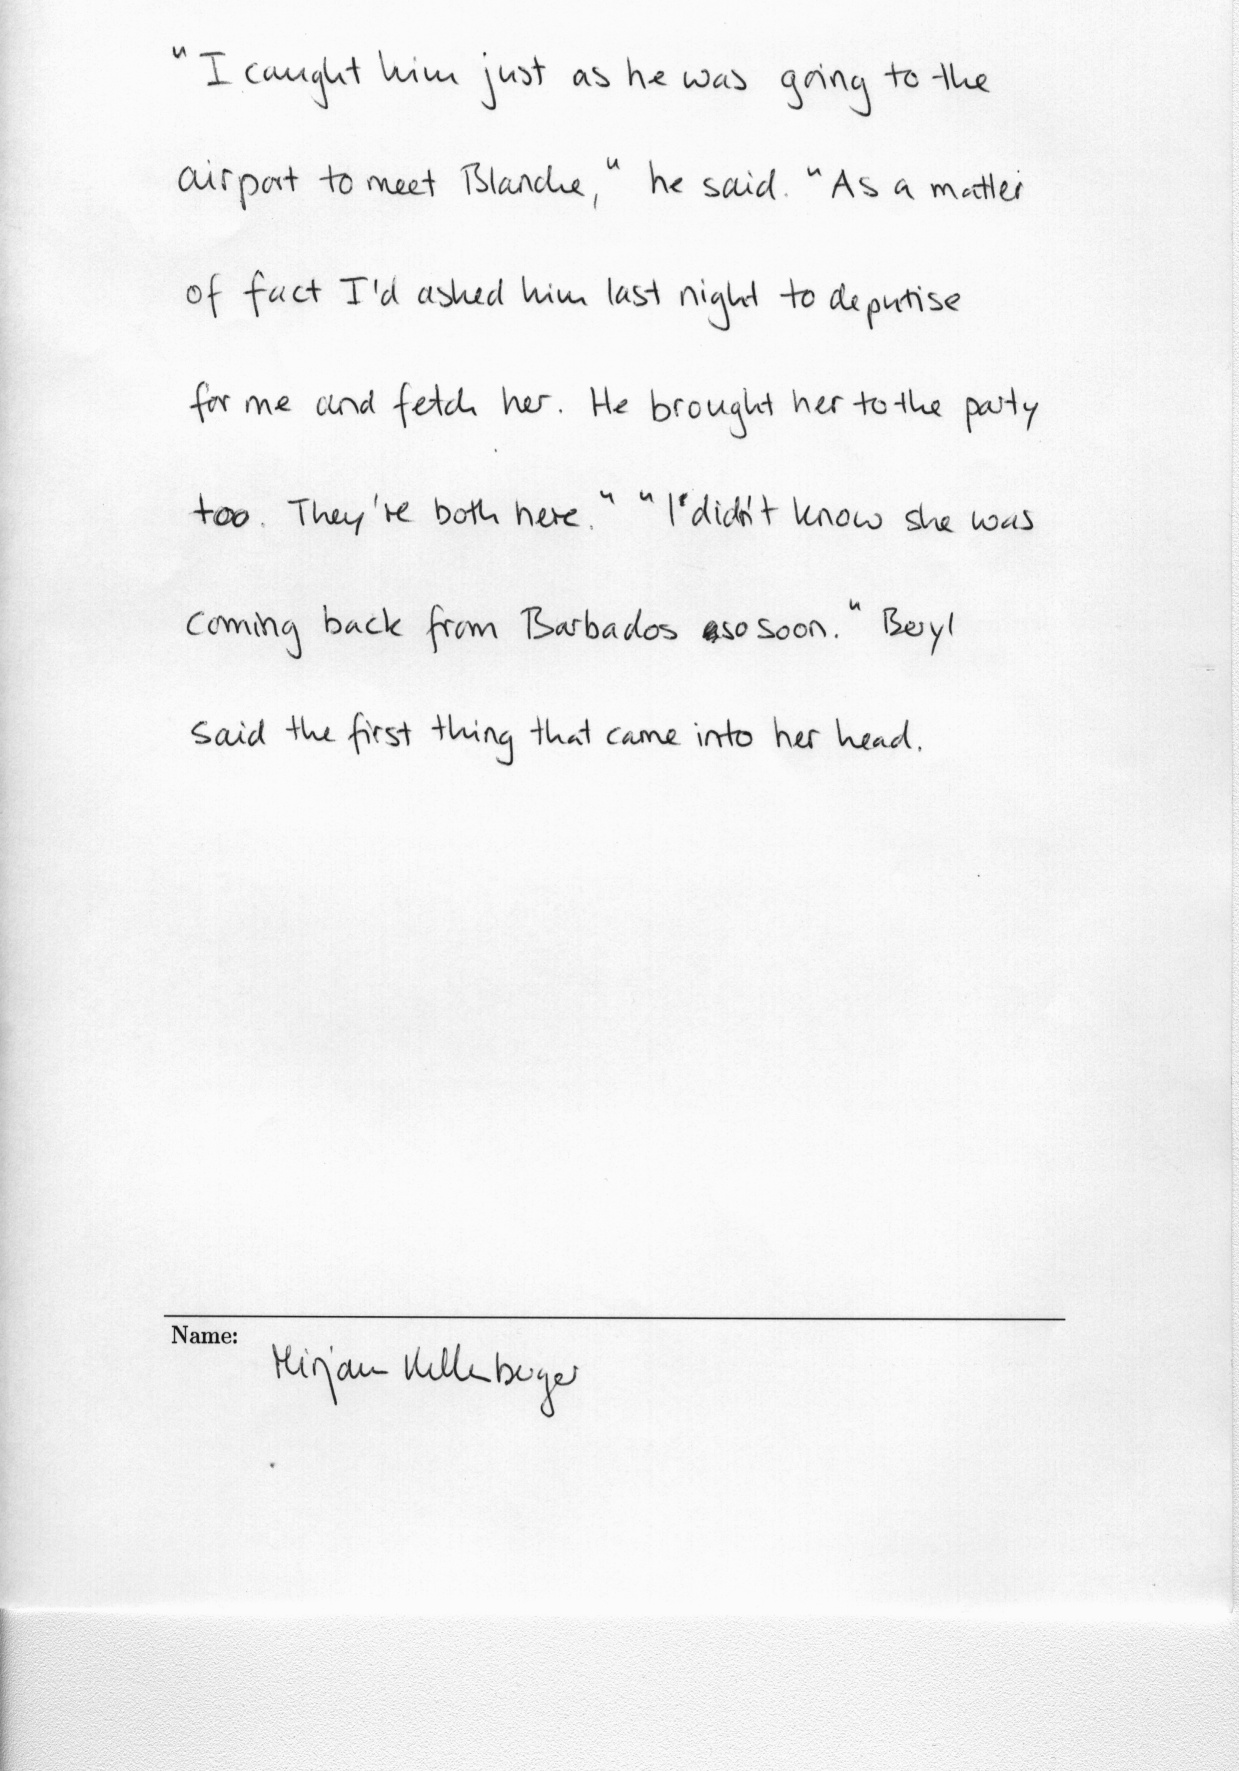 "I caught him just as he was going to the
airport to meet Blanche," he said. "As a matter
of fact I'd asked him last night to deputise
for me and fetch her. He brought her to the party
too. They're both here." "I didn't know she was
coming back from Barbados so soon." Beryl
said the first thing that came into her head.
Name:
Mirjam Kellenberger